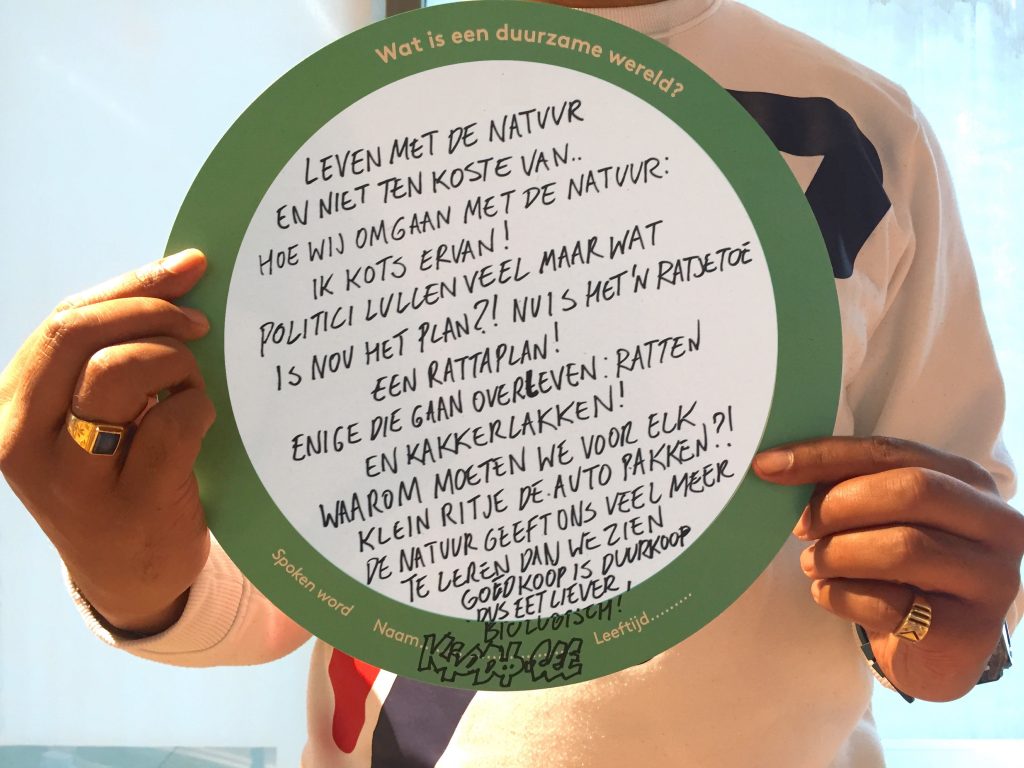 Wat is een duurzame wereld?
LEVEN MET DE NATUUR
EN NIET TEN KOSTE VAN..
HOE WIJ OMGAAN MET DE NATUUR:
IK KOTS ERVAN!
POLITICI LULLEN VEEL MAAR WAT
IS NOU HET PLAN?! NU IS HET 'N RATJETOE
EEN RATTAPLAN!
ENIGE DIE GAAN OVERLEVEN: RATTEN
EN KAKKERLAKKEN!
WAAROM MOETEN WE VOOR ELK
KLEIN RITJE DE AUTO PAKKEN?!
DE NATUUR GEEFT ONS VEEL MEER
TE LEREN DAN WE ZIEN
GOEDKOOP IS DUURKOOP
DUS EET LIEVER
BIOLOGISCH!
Spoken word
Naam
Leeftijd.........